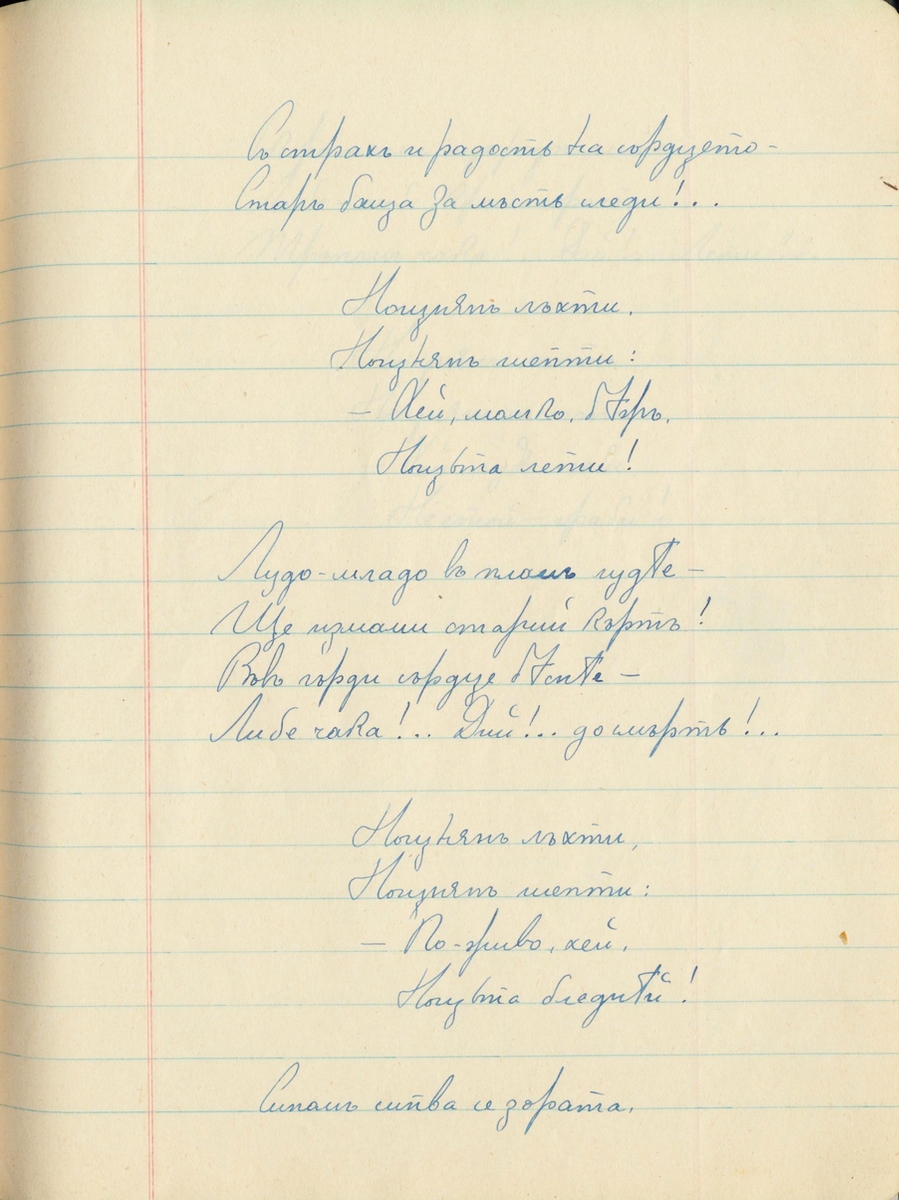 Съ страхъ и радость на сърдцето –
Старъ баща за мъсть следи!..
Нощнянъ лъхти,
Нощнянъ шепти:
– Хей, момко, бѫрь,
Нощьта лети!
Лудо-младо въ пламъ лудѣе –
Ще измами старий кърть!
Въвъ гърди сърдце бѫснѣе –
Либе чака!.. Дий!.. до смърть!..
Нощнянъ лъхти,
Нощнянъ шепти:
– По-живо, хей,
Нощьта бледнѣй!
ситва се зората,